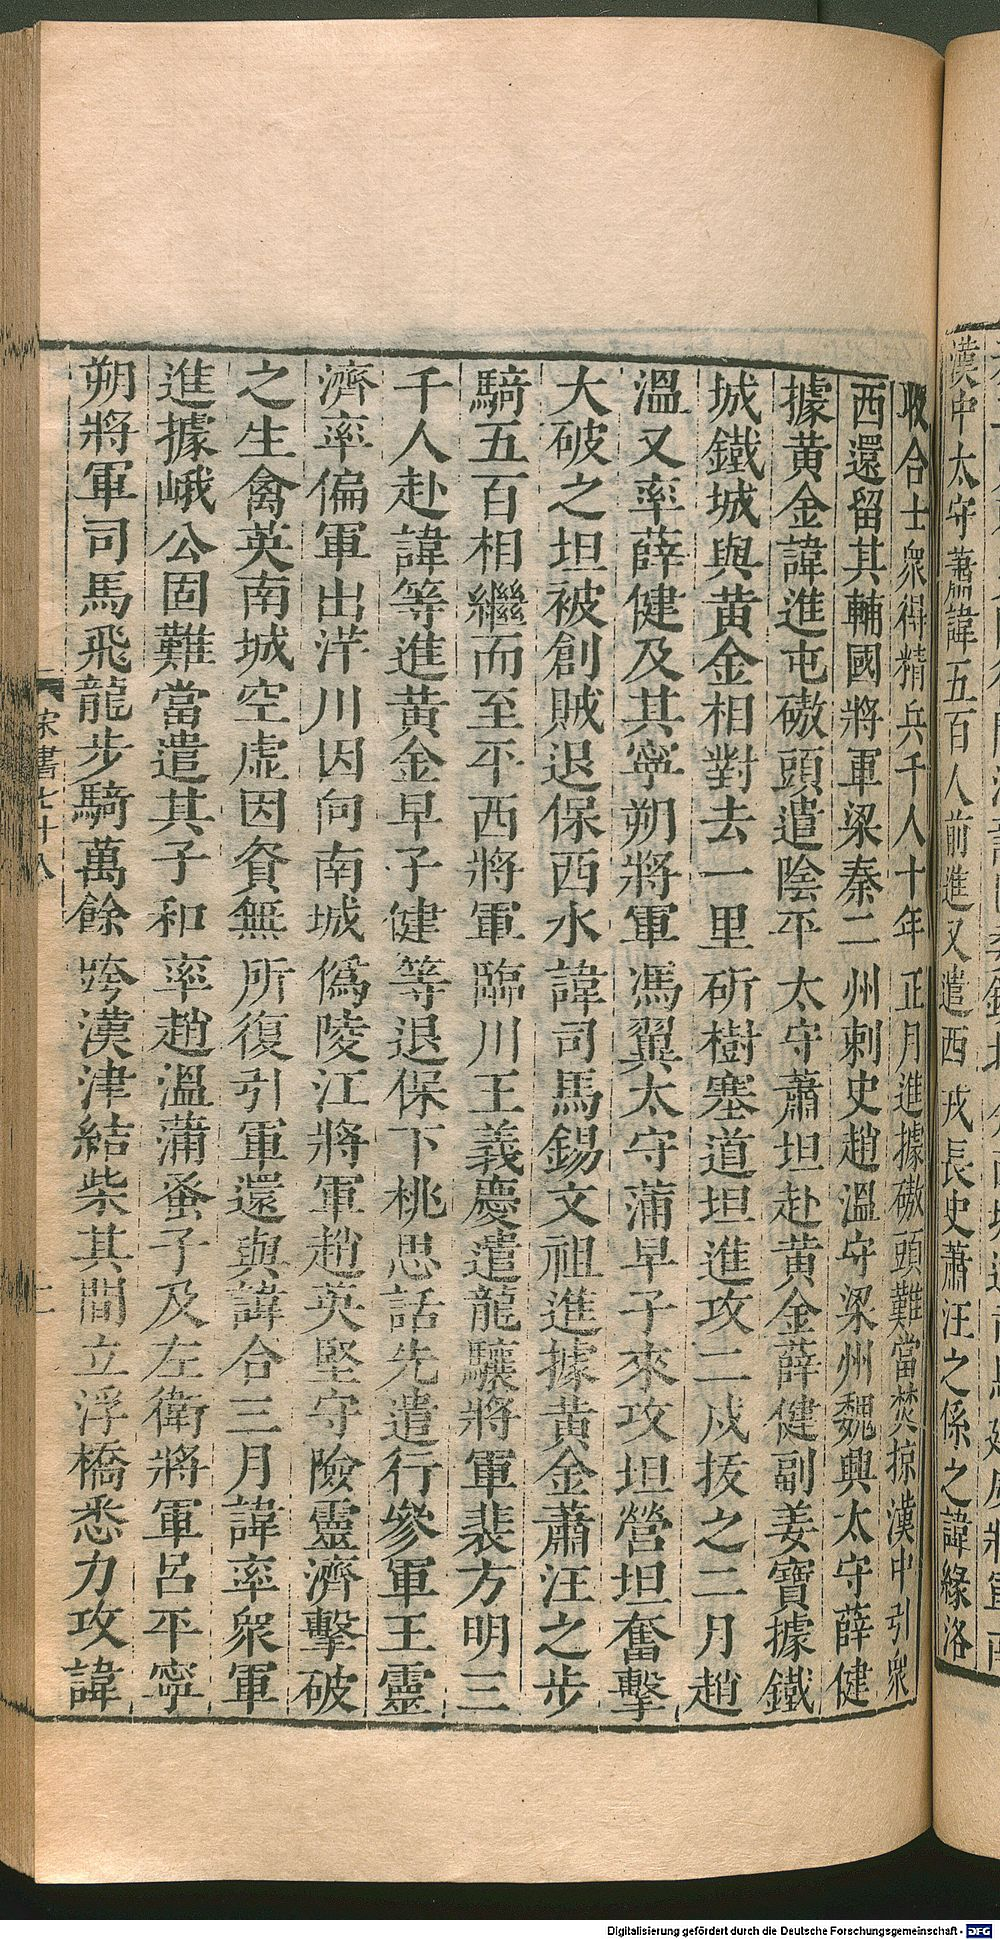 漢中太守蕭諱五百人前進又遣西戎長史蕭汪之係之諱緣洛
收合士衆得精兵千人十年正月進據磝頭難當焚掠漢中引衆
西還留其輔國將軍梁秦二州刺史趙溫守梁州魏興太守薛健
據黄金諱進屯磝頭遣陰平太守蕭坦赴黄金薛健副姜寶據鐵
城鐵城與黄金相對去一里斫樹塞道坦進攻二戍拔之二月趙
溫又率薛健及其寧朔將軍馮翼太守蒲早子來攻坦營坦奮擊
大破之坦被創賊退保西水諱司馬錫文祖進據黄金蕭汪之步
騎五百相繼而至平西將軍臨川王義慶遣龍驤將軍裴方明三
千人赴諱等進黄金早子健等退保下桃思話先遣行參軍王靈
濟率偏軍出洋川因向南城僞陵江將軍趙英堅守險靈濟擊破
之生禽英南城空虚因資無所復引軍還與諱合三月諱率衆軍
進據峨公固難當遣其子和率趙溫蒲蚤子及左衛將軍呂平寧
朔將軍司馬飛龍步騎萬餘跨漢津結柴其間立浮橋悉力攻諱
宋書七十八
二
Digitalisierung gefördert durch die Deutsche Forschungsgemeinschaft - DFG